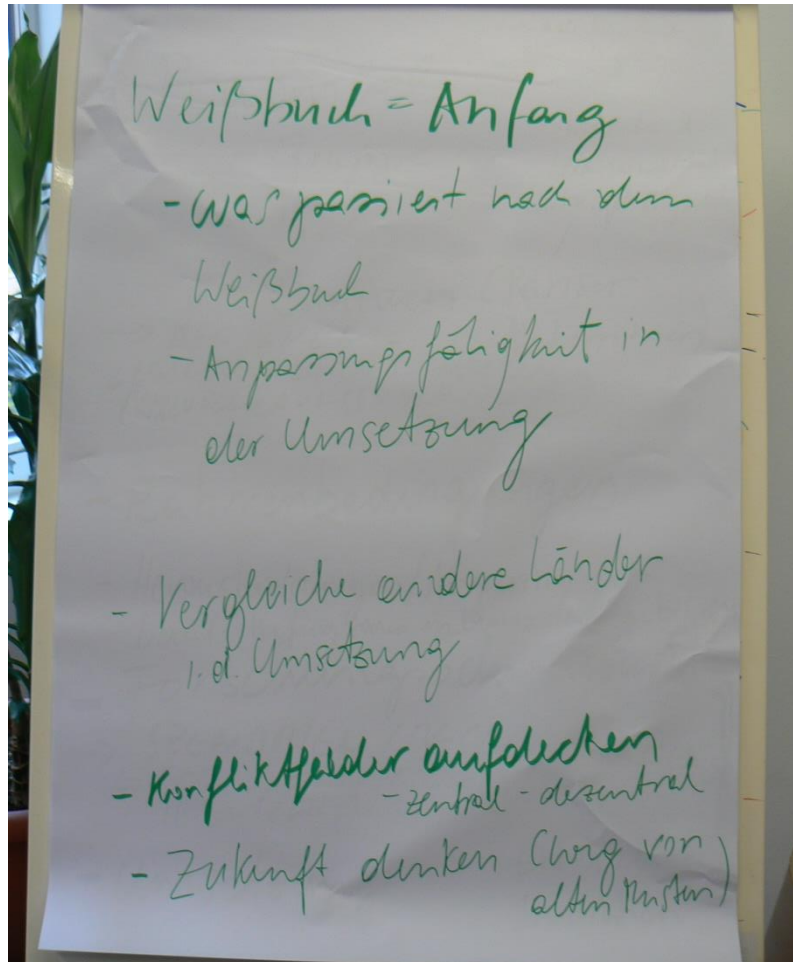 Weißbuch = Anfang
- was passiert nach dem
Weißbuch
- Anpassungsfähigkeit in
der Umsetzung
- Vergleiche andere Länder
i.d. Umsetzung
- Konfliktfelder aufdecken
- zentral - dezentral
- Zukunft denken (weg von
alten Mustern)